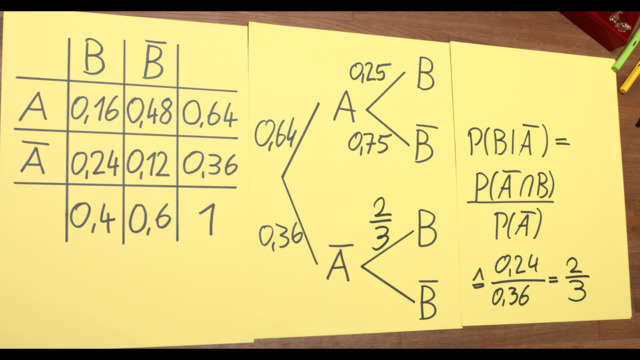 B B̅
A 0,16 0,48 0,64
A̅ 0,24 0,12 0,36
0,4 0,6 1
0,25 B
A
0,64 0,75 B̅
2/3 B
0,36
A̅
B̅
P(B|A̅) =
P(A̅∩B)
P(A̅)
≙ 0,24/0,36 = 2/3